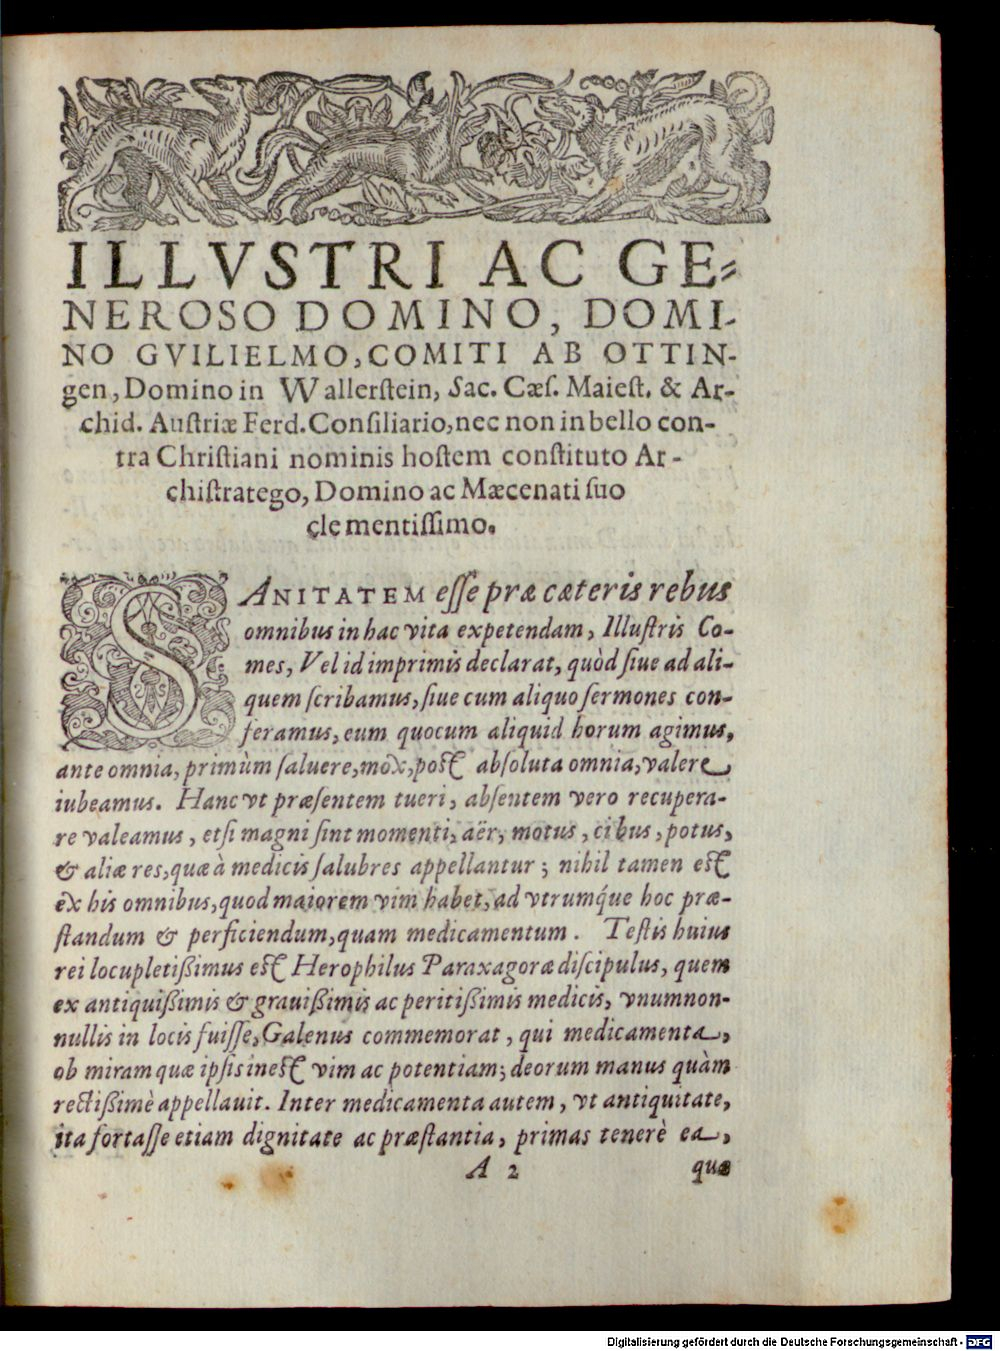 ILLVSTRI AC GE-
NEROSO DOMINO, DOMI-
NO GVILIELMO, COMITI AB OTTIN-
gen, Domino in Wallerstein, Sac. Cæs. Maiest. & Ar-
chid. Austriæ Ferd. Consiliario, nec non in bello con-
tra Christiani nominis hostem constituto Ar-
chistratego, Domino ac Mæcenati suo
clementissimo.
SANITATEM esse præ cæteris rebus
omnibus in hac vita expetendam, Illustris Co-
mes, Vel id imprimis declarat, quòd siue ad ali-
quem scribamus, siue cum aliquo sermones con-
feramus, eum quocum aliquid horum agimus,
ante omnia, primùm saluere, mox, post absoluta omnia, valere
iubeamus. Hanc vt præsentem tueri, absentem vero recupera-
re valeamus, etsi magni sint momenti, aër, motus, cibus, potus,
& aliæ res, quæ à medicis salubres appellantur; nihil tamen est
ex his omnibus, quod maiorem vim habet, ad vtrumq́ue hoc præ-
standum & perficiendum, quam medicamentum. Testis huius
rei locupletißimus est Herophilus Paraxagoræ discipulus, quem
ex antiquißimis & grauißimis ac peritißimis medicis, vnum non-
nullis in locis fuisse, Galenus commemorat, qui medicamenta,
ob miram quæ ipsis inest vim ac potentiam; deorum manus quàm
rectißimè appellauit. Inter medicamenta autem, vt antiquitate,
ita fortasse etiam dignitate ac præstantia, primas tenerè ea,
A 2 quæ
Digitalisierung gefördert durch die Deutsche Forschungsgemeinschaft - DFG